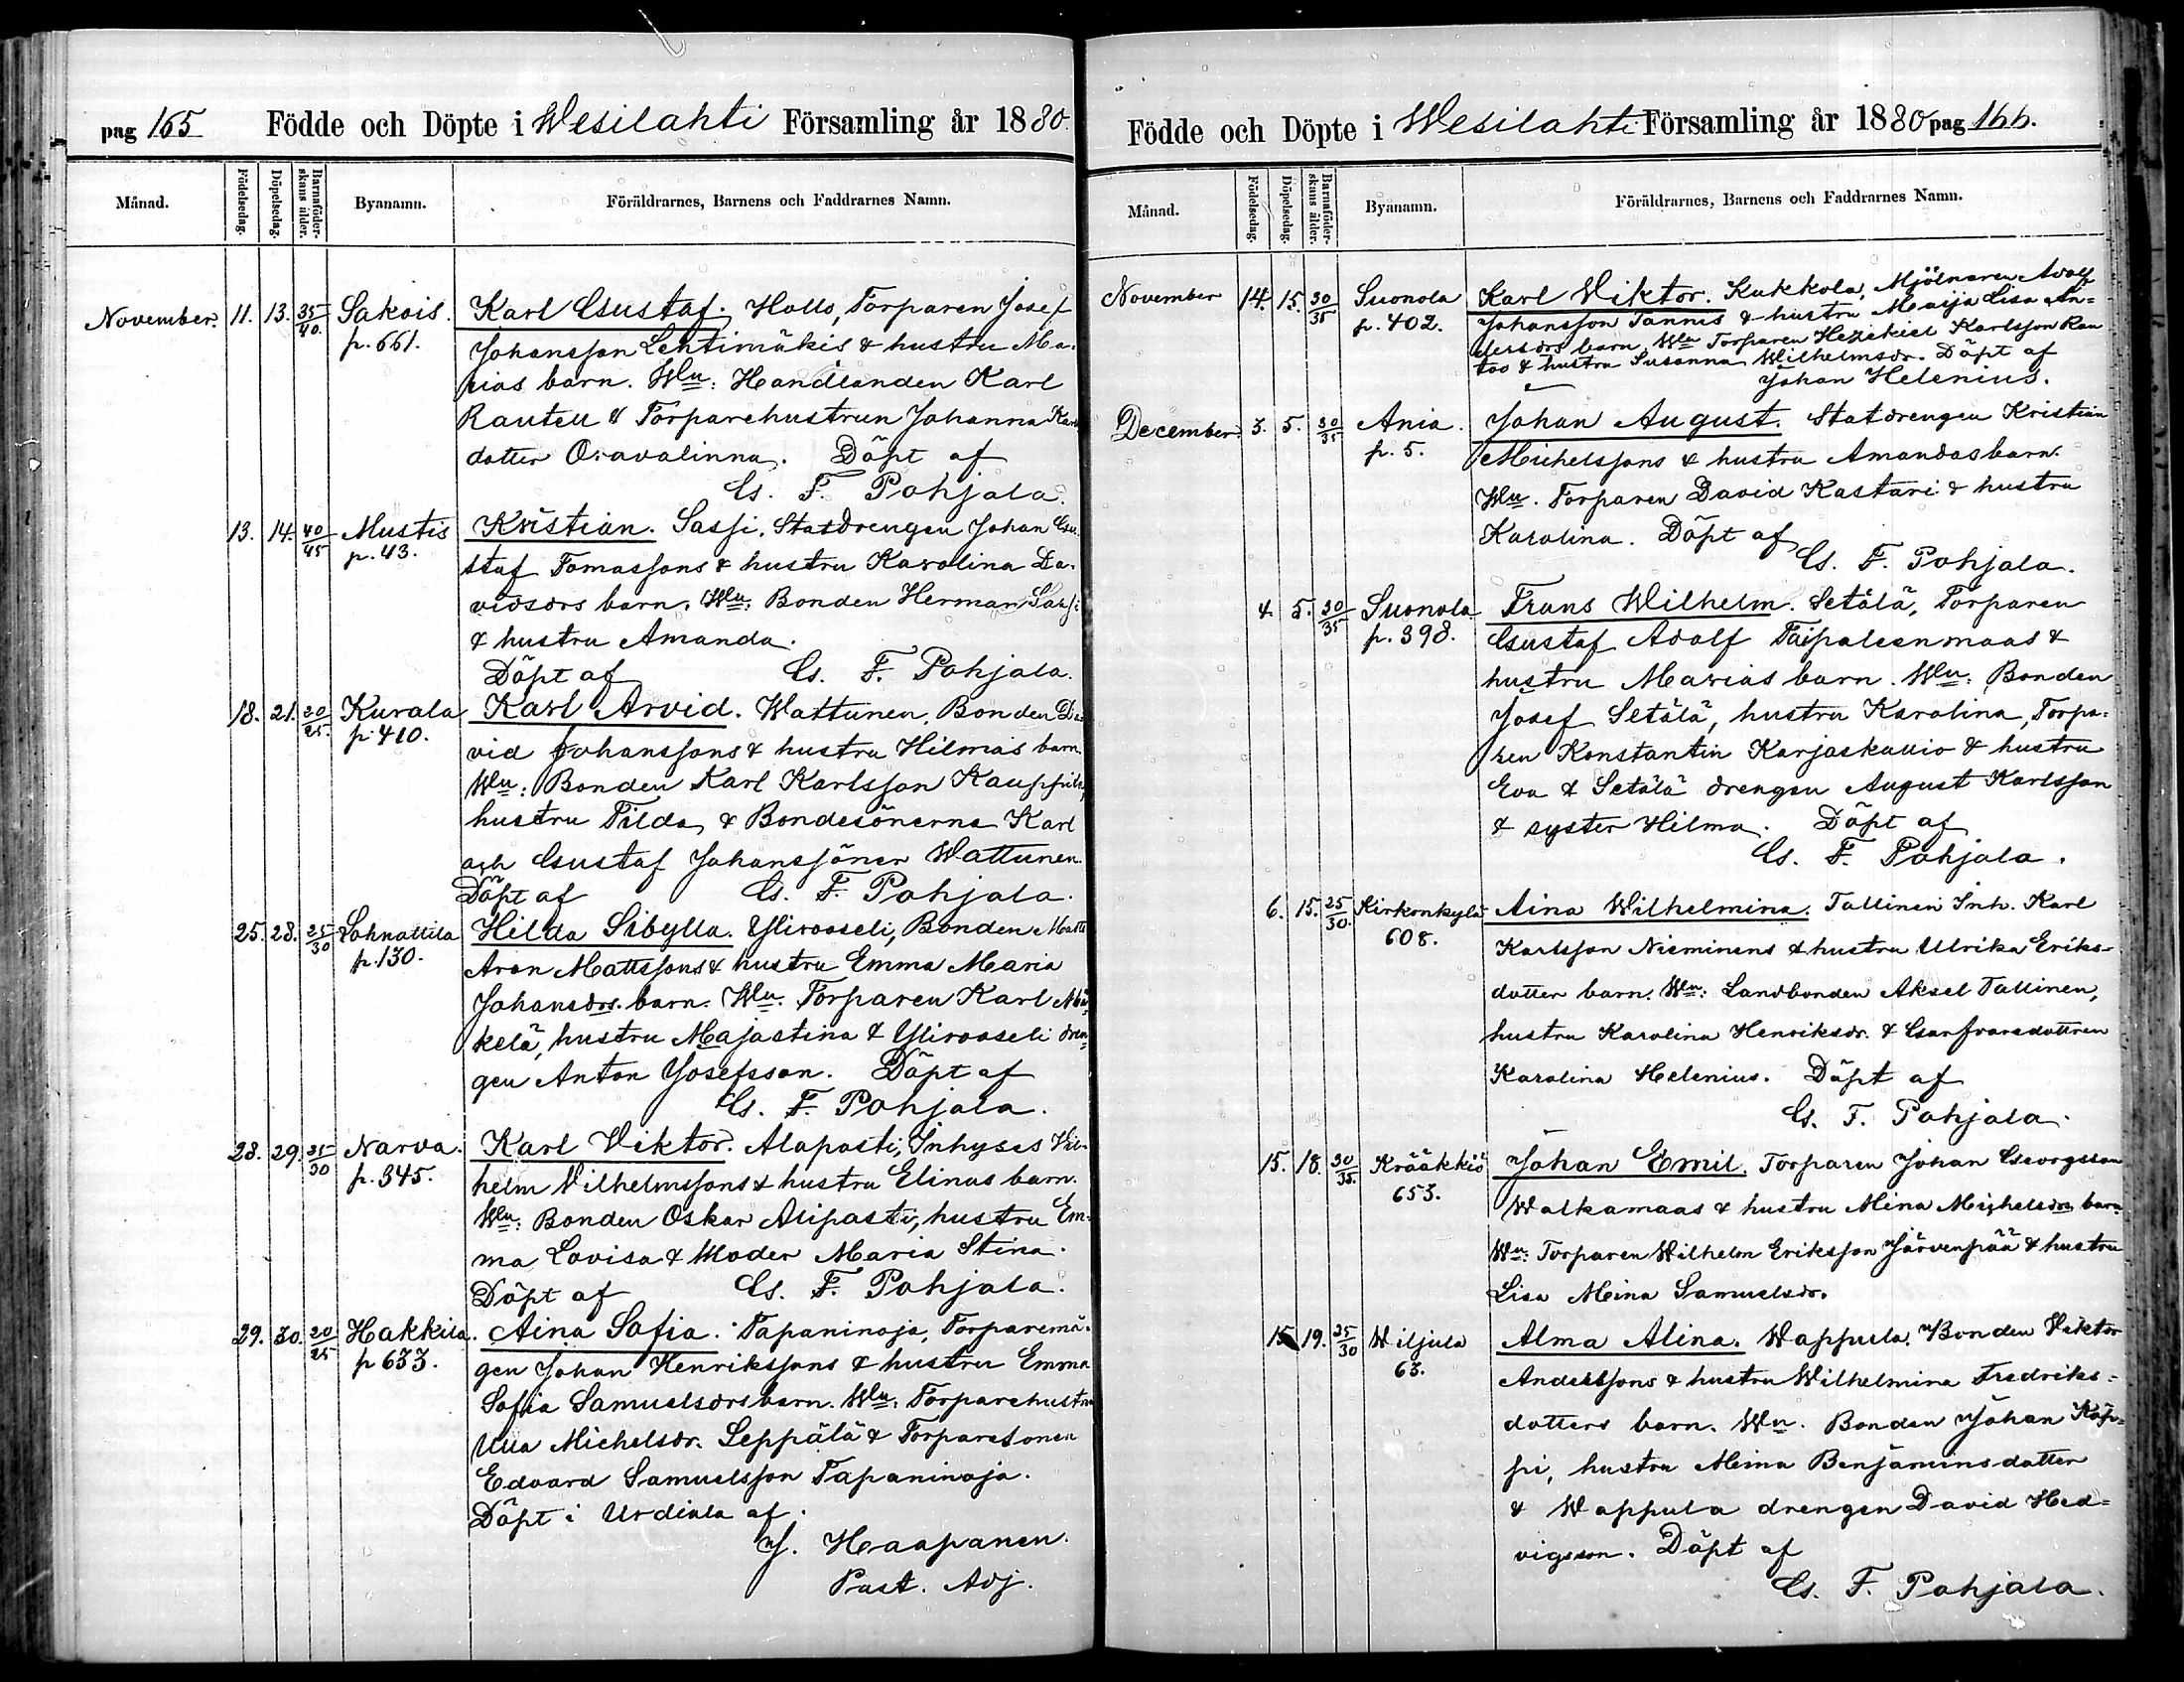 pag 165 Födde och Döpte i Wesilahti Församling år 1880.
Månad. Födelsedag. Döpelsedag. Barnaföderskans ålder. Byanamn. Föräldrarnes, Barnens och Faddrarnes Namn.
November. 11. 13. 35/40. Sakois. Karl Gustaf. Hollo, Torparen Josef
p. 661. Johansson Lehtimäkis & hustru Ma-
rias barn. Wn: Handlanden Karl
Rauteu & Torparehustrun Johanna Karls
dotter Oravalinna. Döpt af
G. F. Pohjala.
13. 14. 40/45 Mustis Kristian. Sassi. Statdrengen Johan Gu-
p. 43. staf Tomassons & hustru Karolina Da-
vidsdrs barn. Wn: Bonden Herman Sassi
& hustru Amanda.
Döpt af G. F. Pohjala.
18. 21. 20/25. Kurala Karl Arvid. Wattunen, Bonden Da-
p. 410. vid Johanssons & hustru Hilmas barn.
Wn: Bonden Karl Karlsson Kauppila,
hustru Tilda & Bondesönerna Karl
och Gustaf Johanssöner Wattunen.
Döpt af G. F. Pohjala.
25. 28. 25/30 Lahnattila Hilda Sibylla. Ylirooseli, Bonden Matts
p. 130. Aron Mattssons & hustru Emma Maria
Johansdrs. barn. Wn: Torparen Karl Mä-
kelä, hustru Majastina & Ylirooseli dren-
gen Anton Josefsson. Döpt af
G. F. Pohjala.
28. 29. 25/30 Narva. Karl Viktor. Alapasti, Inhyses Vil-
p. 345. helm Vilhelmssons & hustru Elinas barn.
Wn: Bonden Oskar Alipasti, hustru Em-
ma Lovisa & Moder Maria Stina.
Döpt af G. F. Pohjala.
29. 30. 20/25 Hakkila. Aina Sofia. Tapaninoja, Torparemå-
p 633. gen Johan Henrikssons & hustru Emma
Sofia Samuelsdrs barn. Wn: Torparehustru
Ulla Michelsdr. Seppälä & Torparesonen
Edvard Samuelsson Tapaninoja.
Döpt i Urdiala af.
J. Haapanen.
Past. Adj.
Födde och Döpte i Wesilahti Församling år 1880 pag 166.
Månad. Födelsedag. Döpelsedag. Barnaföderskans ålder. Byanamn. Föräldrarnes, Barnens och Faddrarnes Namn.
November 14. 15. 30/35 Suonola Karl Viktor. Kukkola, Mjölnaren Adolf
p. 402. Johansson Tannis & hustru Maija Lisa An-
dersdrs barn. Wn Torparen Hezekiel Karlsson Rau
too & hustru Susanna Wilhelmsdr. Döpt af
Johan Helenius.
December. 3. 5. 30/35. Ania. Johan August. Statdrengen Kristian
p. 5. Michelssons & hustru Amandas barn.
Wn. Torparen David Kastari & hustru
Karolina. Döpt af
G. F. Pohjala.
4. 5. 30/35 Suonola Frans Wilhelm. Setälä, Torparen
p. 398. Gustaf Adolf Taipaleenmaas &
hustru Marias barn. Wn: Bonden
Josef Setälä, hustru Karolina, Torpa-
ren Konstantin Karjaskallio & hustru
Eva & Setälä drengen August Karlsson
& syster Hilma. Döpt af
G. F. Pohjala.
6. 15. 25/30. Kirkonkylä Aina Wilhelmina. Tallinen Inh. Karl
608. Karlsson Nieminens & hustru Ulrika Eriks-
dotter barn. Wn: Landbonden Aksel Tallinen,
hustru Karolina Henriksdr. & Garfvaredottren
Karolina Helenius. Döpt af
G. F. Pohjala.
15. 18. 30/35. Krääkkiö Johan Emil. Torparen Johan Georgsson
653. Walkamaas & hustru Mina Michelsdrs barn.
Wn: Torparen Wilhelm Eriksson Järvenpää & hustru
Lisa Mina Samuelsdr.
15 19. 25/30 Wiljula Alma Alina. Wappula. Bonden Viktor
63. Anderssons & hustru Wilhelmina Fredriks-
dotters barn. Wn. Bonden Johan Kop-
pi, hustru Mina Benjaminsdotter
& Wappula drengen David Hed-
vigsson. Döpt af
G. F. Pohjala.